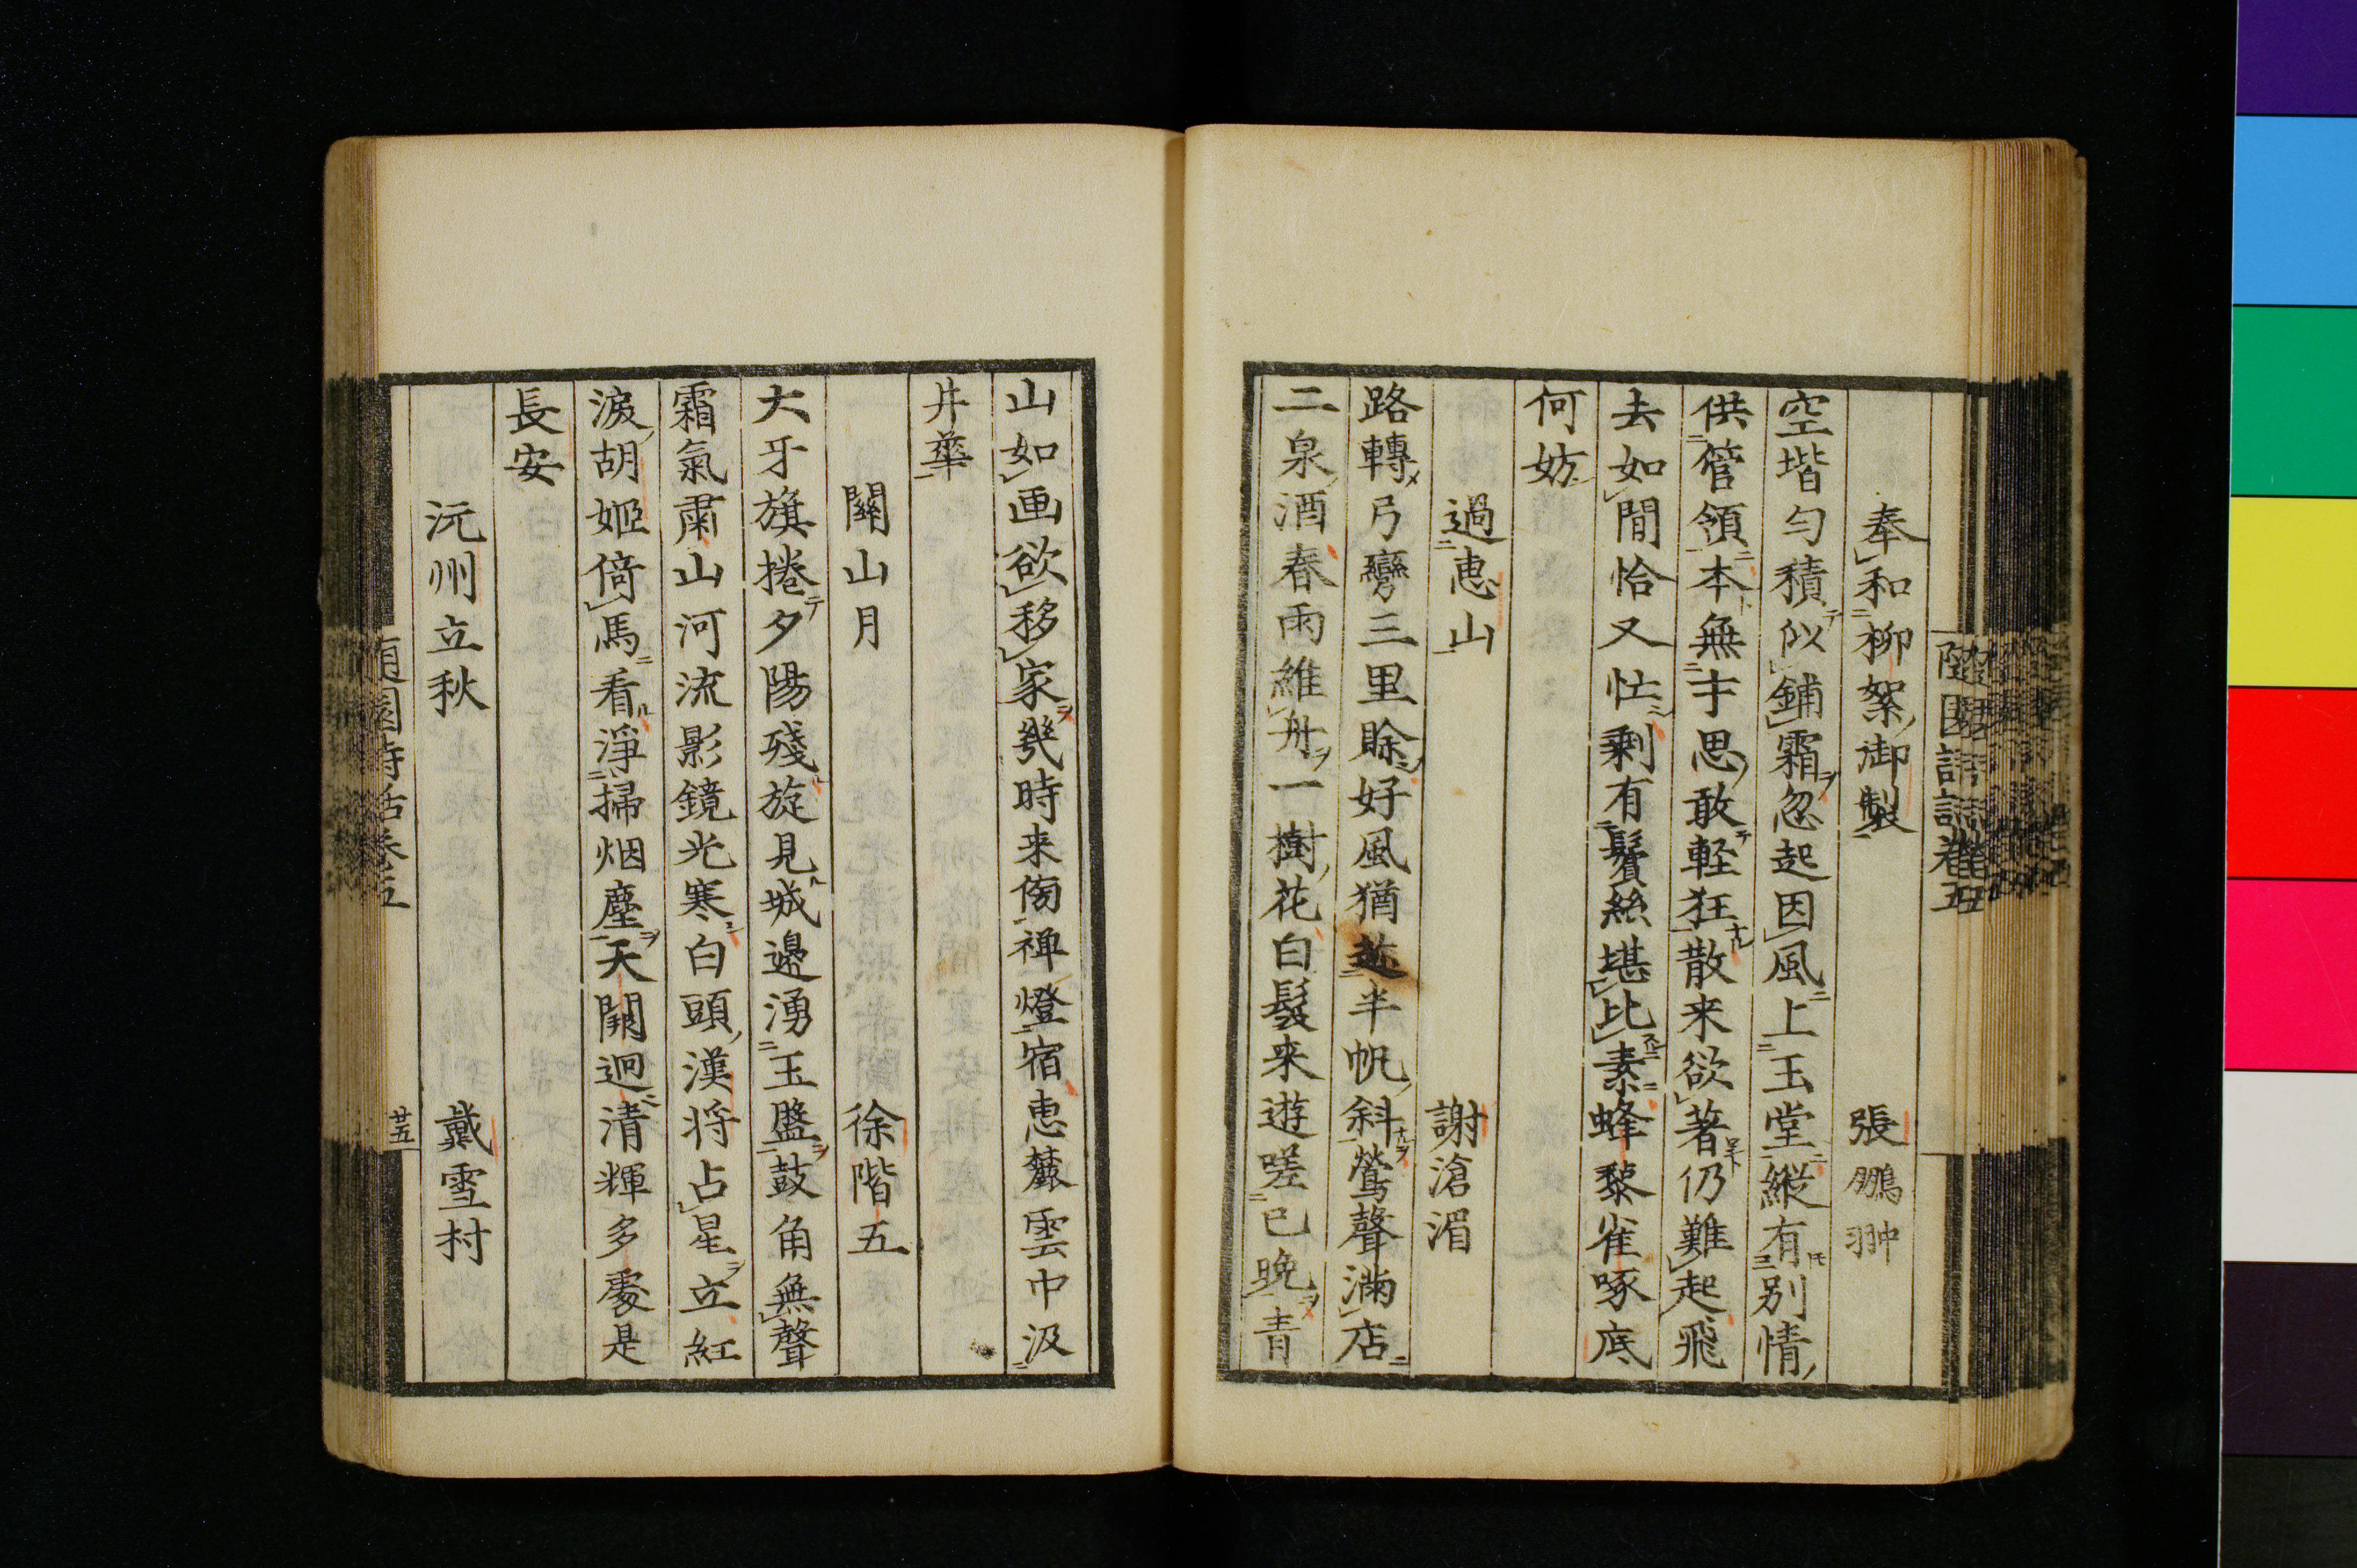 奉和柳絮御製　張鵬翀
空堦勻積似鋪霜忽起因風上玉堂縱有別情
供管領本無才思敢軽狂散来欲著仍難起飛
去如間恰又忙剩有鬢絲堪比素蜂黎雀啄底
何妨
過恵山　謝滄湄
路轉弓彎三里賒好風猶趂半帆斜鶯聲滿店
二泉酒春雨維舟一樹花白髮来遊嗟已晩青
山如画欲移家幾時来傍禅燈宿恵麓雲中汲
井華
關山月　徐階五
大牙旗捲夕陽殘旋見城邊湧玉盤鼓角無聲
霜氣肅山河流影鏡光寒白頭漢将占星立紅
淚胡姬倚馬看淨掃烟塵天闕迥清輝多處是
長安
沅州立秋　戴雪村
隨園詩話巻五
廿五